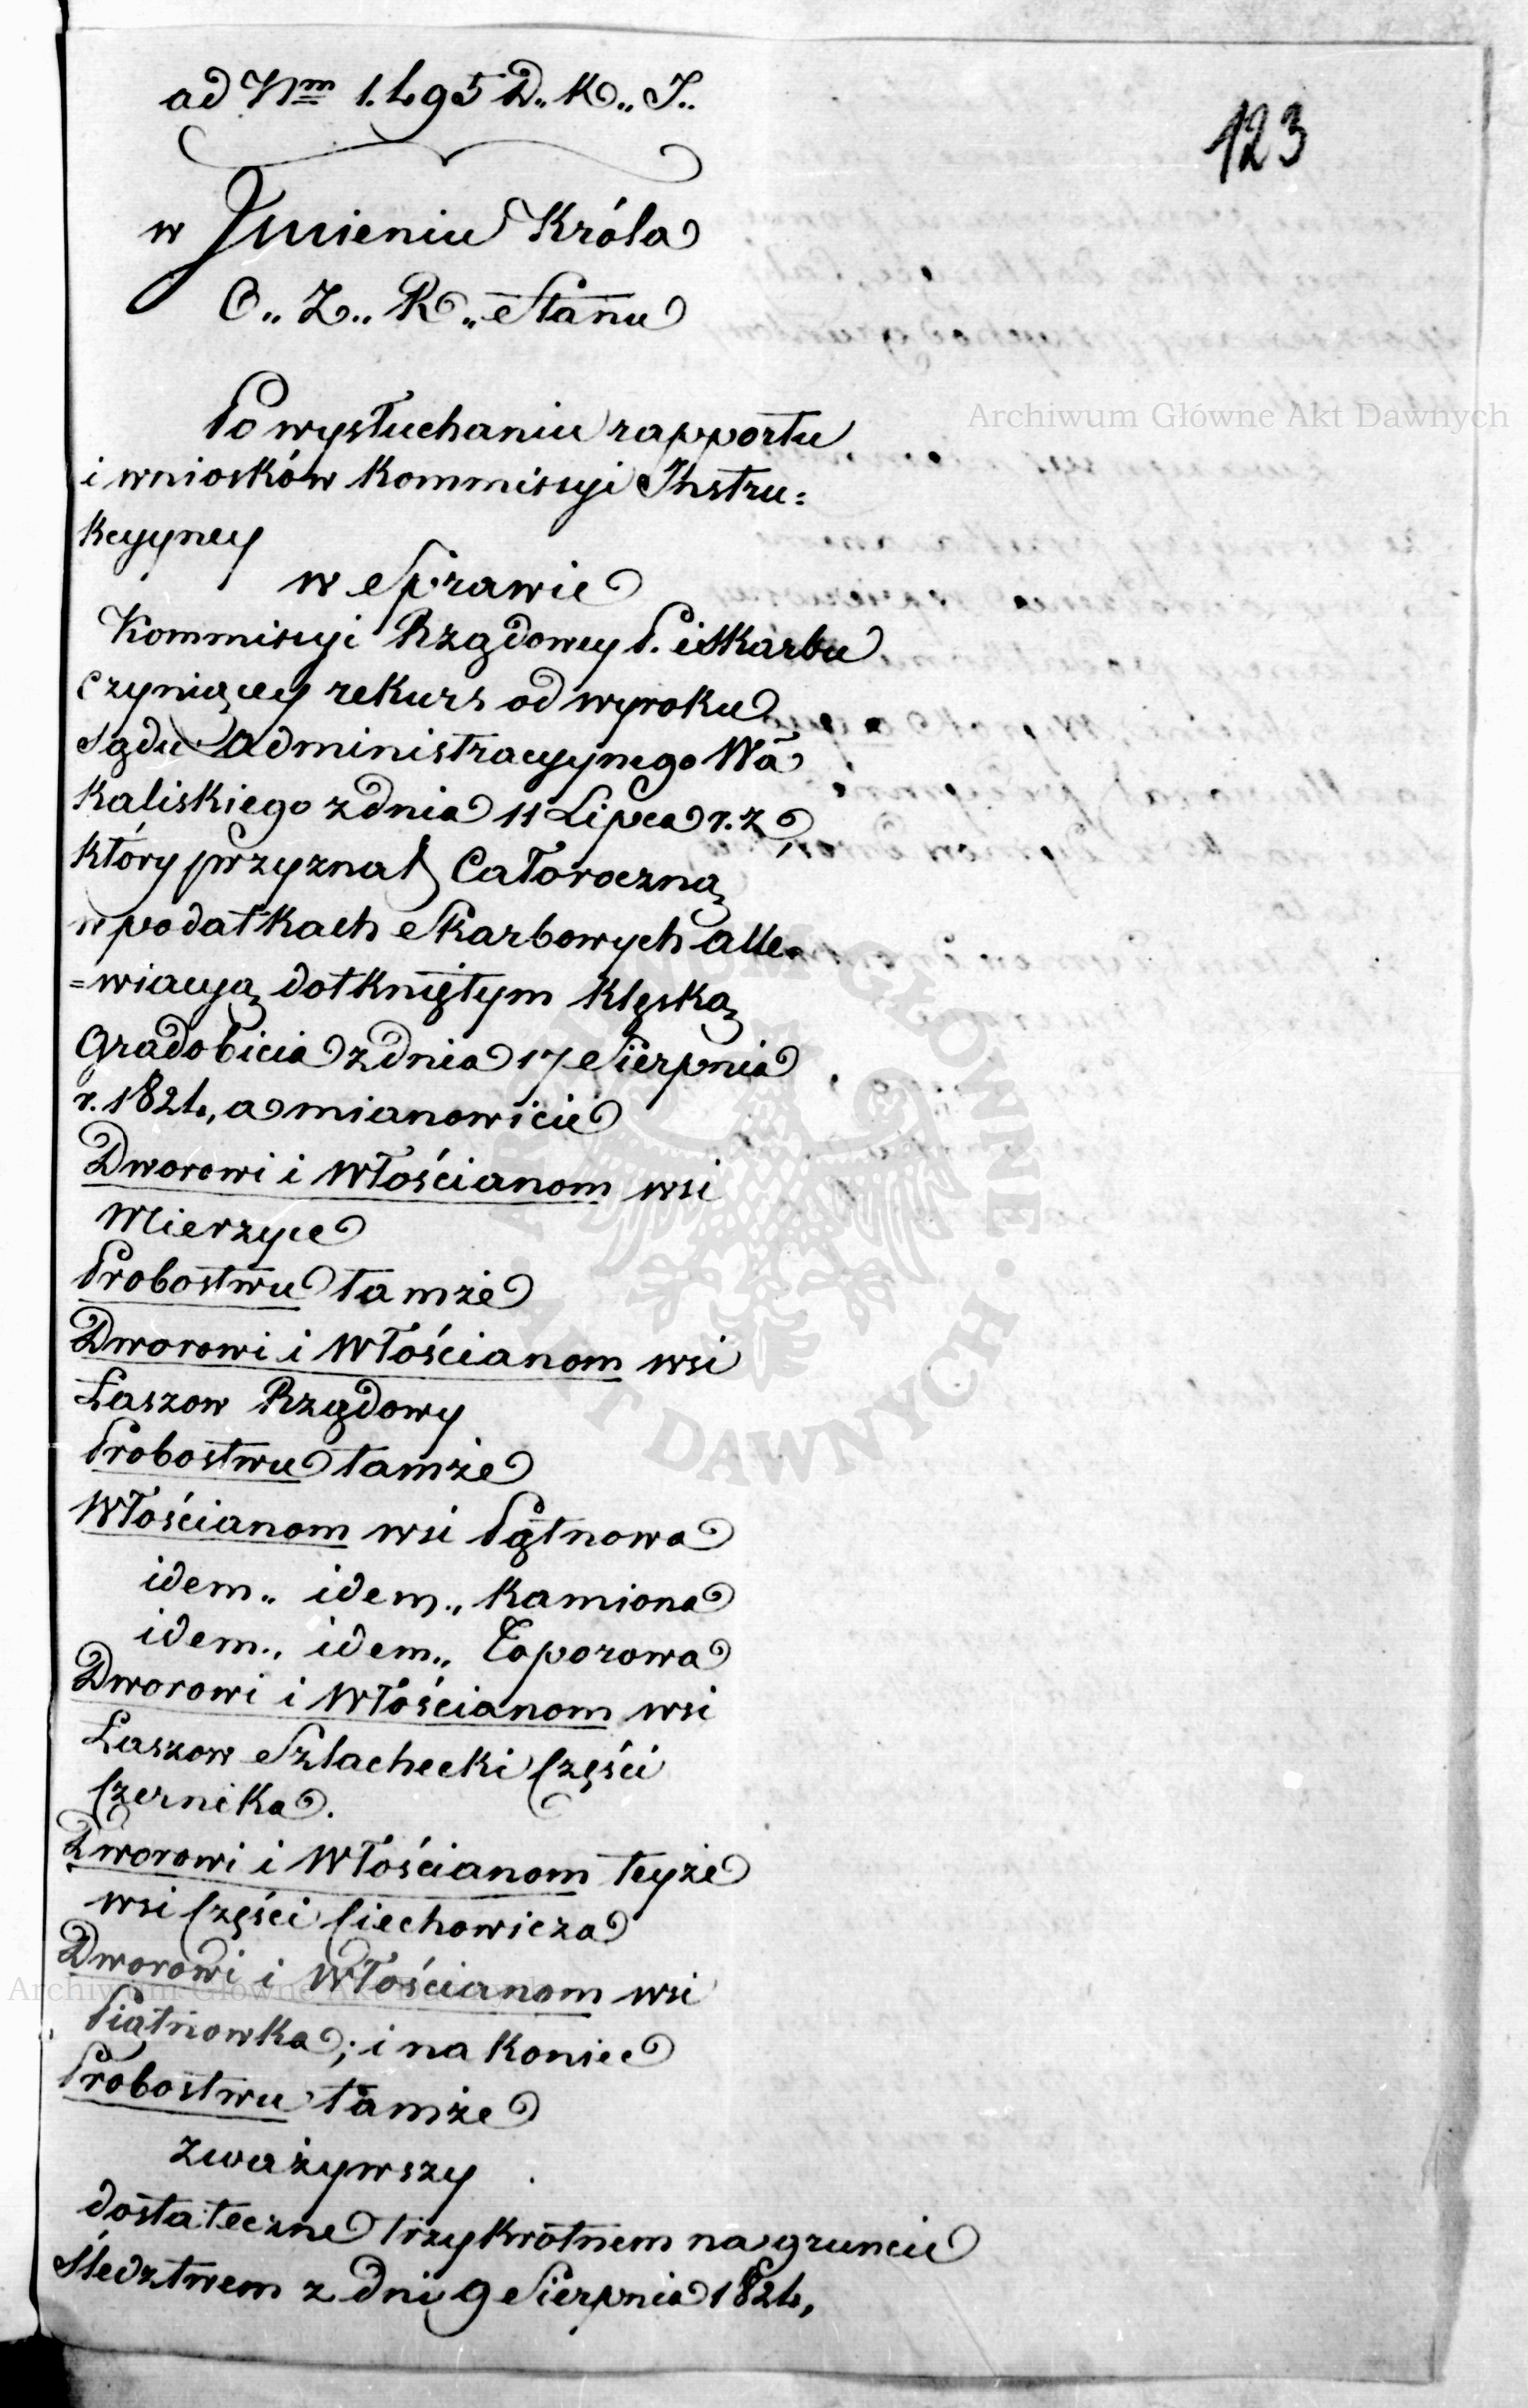 ad Nrm 1.495 D.. K.. J..
123
w Jmieniu Króla
O.. Z.. R.. Stanu
Archiwum Główne Akt Dawnych
Po wysłuchaniu rapportu
i wniosków Kommissyi Instru=
kcyyney
w Sprawie
Kommissyi Rządowey P. i Skarbu
czyniącey rekurs od wyroku
Sądu Administracyynego Wa
Kaliskiego z dnia 11 Lipca r. z.,
który przyznał Całoroczną
w podatkach Skarbowych alle=
=wiacyą dotkniętym klęską
Gradobicia z dnia 17 Sierpnia
r. 1824, a mianowicie
Dworowi i Włościanom wsi
Mierzyce
Probostwu tamże
Dworowi i Włościanom wsi
Łaszow Rządowy
Probostwu tamże
Włościanom wsi Pątnowa
idem.. idem.. Kamiona
idem.. idem.. Toporowa
Dworowi i Włościanom wsi
Łaszow Szlachecki Części
Czernika.
Dworowi i Włościanom teyże
wsi Części Ciechowicza
Dworowi i Włościanom wsi
Piątnowka; i na koniec
Probostwu tamże
zważywszy
dostateczne trzykrotnem na gruncie
Śledztwem z dni 9 Sierpnia 1824,
ARCHIWUM GŁÓWNE AKT DAWNYCH